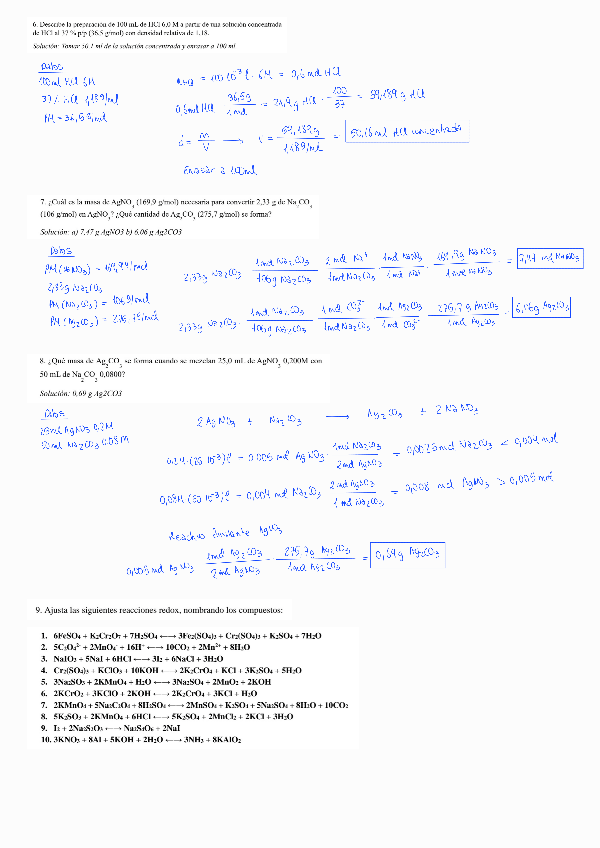 6. Describe la preparación de 100 mL de HCl 6,0 M a partir de una solución concentrada
de HCl al 37 % p/p (36,5 g/mol) con densidad relativa de 1,18.
Solución: Tomar 50,1 ml de la solución concentrada y enrasar a 100 ml
Datos
100 ml HCl 6M
37% HCl 1,18 g/ml
PM = 36,5 g/mol
= 100·10⁻³ l · 6M = 0,6 mol HCl
0,6 mol HCl · 36,5g / 1 mol = 21,9 g HCl · 100 / 37 = 59,189 g HCl
d = m / V → V = 59,189 g / 1,18 g/ml = 50,16 ml HCl concentrado
Enrasar a 100ml
7. ¿Cuál es la masa de AgNO3 (169,9 g/mol) necesaria para convertir 2,33 g de Na2CO3
(106 g/mol) en AgNO3? ¿Qué cantidad de Ag2CO3 (275,7 g/mol) se forma?
Solución: a) 7,47 g AgNO3 b) 6,06 g Ag2CO3
Datos
2,33g Na2CO3
2,33g Na2CO3 · 1 mol Na2CO3 / 106g Na2CO3 · 2 mol Na⁺ / 1 mol Na2CO3
2,33g Na2CO3 · 1 mol Na2CO3 / 106g Na2CO3 · 1 mol CO3²⁻ / 1 mol Na2CO3 · 1 mol Ag2CO3 / 1 mol CO3²⁻ · 275,7 g Ag2CO3 / 1 mol Ag2CO3 = 6,06g Ag2CO3
8. ¿Qué masa de Ag2CO3 se forma cuando se mezclan 25,0 mL de AgNO3 0,200M con
50 mL de Na2CO3 0,0800?
Solución: 0,69 g Ag2CO3
Datos
25ml AgNO3 0,2M
50ml Na2CO3 0.08M
2 AgNO3 + Na2CO3 → Ag2CO3 + 2 NaNO3
0,2M·(25·10⁻³)l = 0.005 mol AgNO3 · 1 mol Na2CO3 / 2 mol AgNO3 = 0,0025 mol Na2CO3 < 0,004 mol
0,08M·(50·10⁻³)l = 0,004 mol Na2CO3 · 2 mol AgNO3 / 1 mol Na2CO3 = 0,008 mol AgNO3 > 0,005 mol
Reactivo limitante AgNO3
0,005 mol AgNO3 · 1 mol Ag2CO3 / 2 mol AgNO3 · 275,7g Ag2CO3 / 1 mol Ag2CO3 = 0,69g Ag2CO3
9. Ajusta las siguientes reacciones redox, nombrando los compuestos:
1. 6FeSO4 + K2Cr2O7 + 7H2SO4 ←→ 3Fe2(SO4)3 + Cr2(SO4)3 + K2SO4 + 7H2O
2. 5C2O4²⁻ + 2MnO4⁻ + 16H⁺ ←→ 10CO2 + 2Mn²⁺ + 8H2O
3. NaIO3 + 5NaI + 6HCl ←→ 3I2 + 6NaCl + 3H2O
4. Cr2(SO4)3 + KClO3 + 10KOH ←→ 2K2CrO4 + KCl + 3K2SO4 + 5H2O
5. 3Na2SO3 + 2KMnO4 + H2O ←→ 3Na2SO4 + 2MnO2 + 2KOH
6. 2KCrO2 + 3KClO + 2KOH ←→ 2K2CrO4 + 3KCl + H2O
7. 2KMnO4 + 5Na2C2O4 + 8H2SO4 ←→ 2MnSO4 + K2SO4 + 5Na2SO4 + 8H2O + 10CO2
8. 5K2SO3 + 2KMnO4 + 6HCl ←→ 5K2SO4 + 2MnCl2 + 2KCl + 3H2O
9. I2 + 2Na2S2O3 ←→ Na2S4O6 + 2NaI
10. 3KNO3 + 8Al + 5KOH + 2H2O ←→ 3NH3 + 8KAlO2